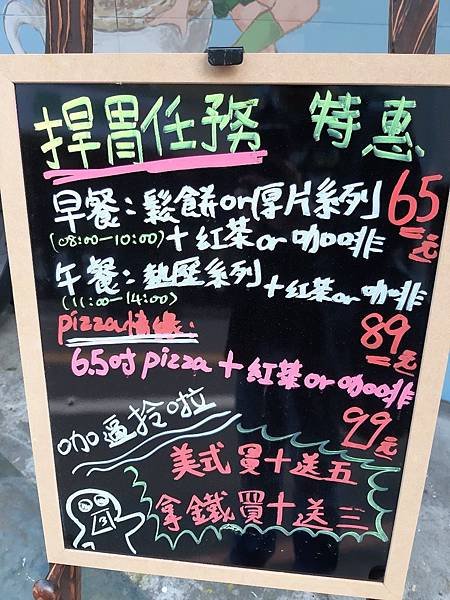 捍胃任務 特惠
早餐：鬆餅or厚片系列 65元
(08:00-10:00) +紅茶or咖啡
午餐：熱壓系列 +紅茶or咖啡
(11:00-14:00) 89元
pizza情緣：
6.5吋pizza+紅茶or咖啡
99元
咖逼拎啦
美式買十送五
拿鐵買十送三